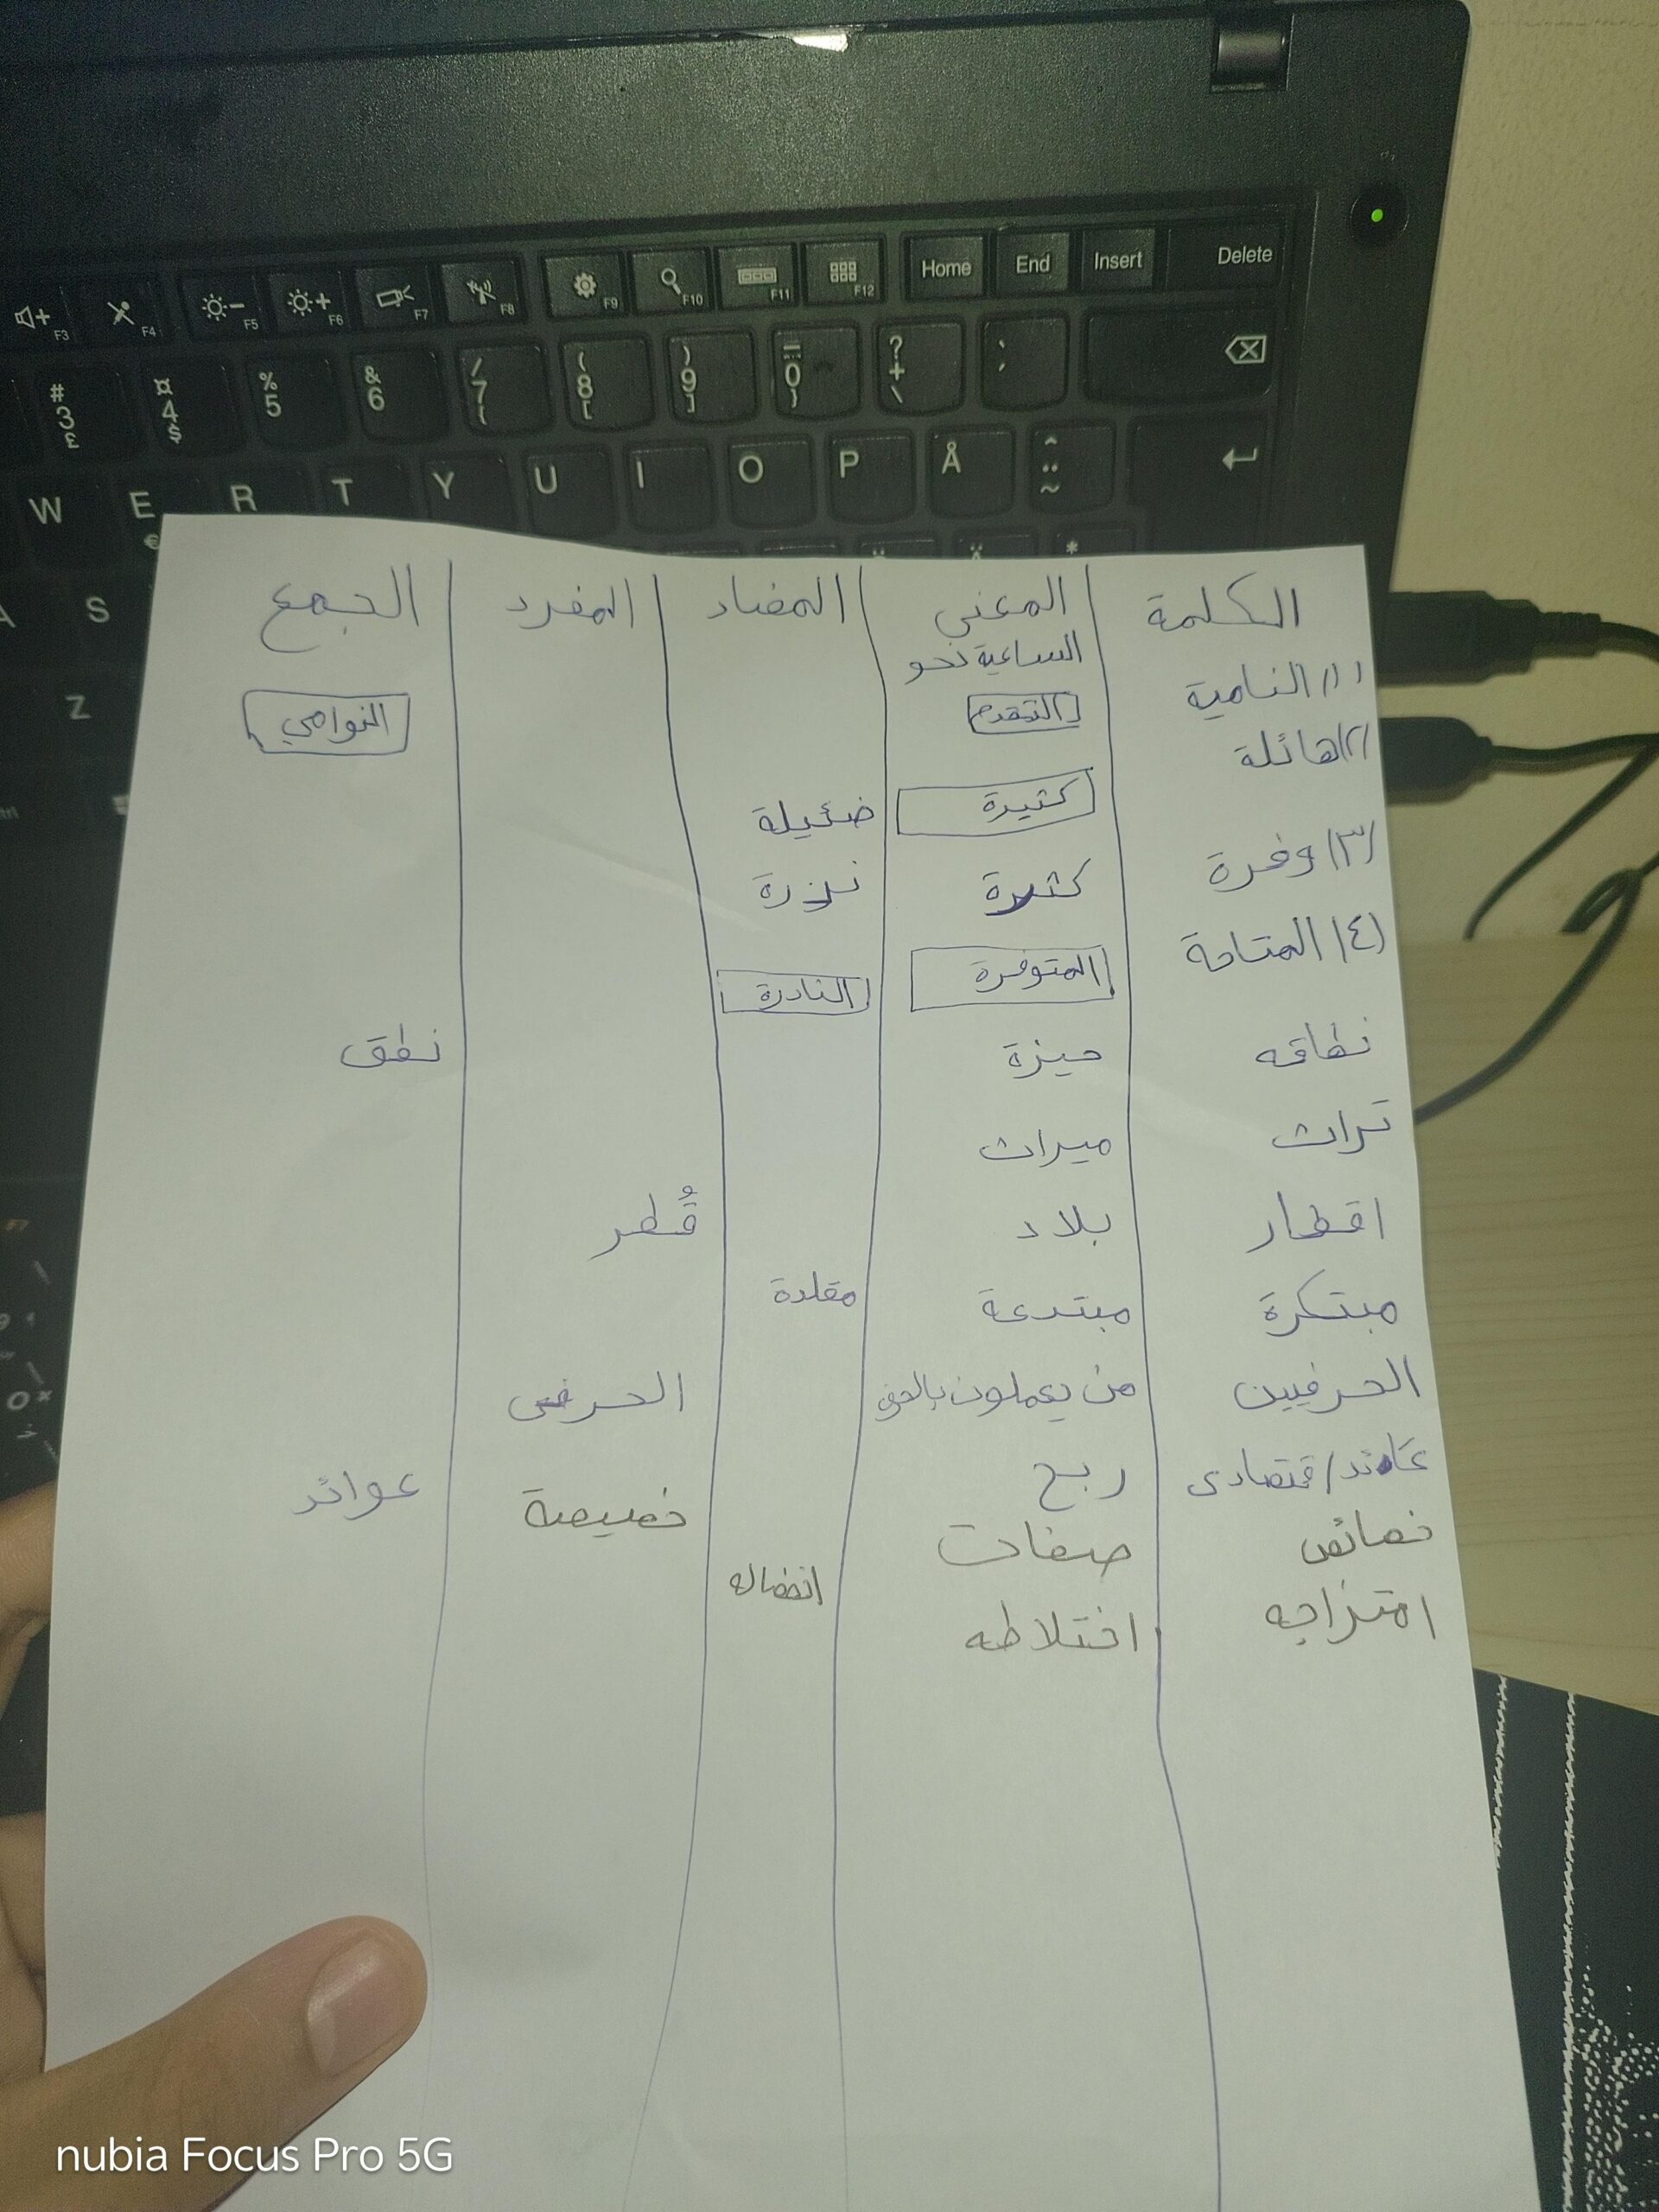 F3 F4 F5 F6 F7 F8 F9 F10 F11 F12 Home End Insert Delete
# 3 £ ¤ 4 $ % 5 & 6 / 7 { ( 8 [ ) 9 ] = 0 } ? + \ `
W E R T Y U I O P Å ^ ¨ ~
€ *
A S
Z
الكلمة المعنى المضاد المفرد الجمع
(١) النامية الساعية نحو التقدم النوامي
(٢) هائلة كثيرة ضئيلة
(٣) وفرة كثرة نزرة
(٤) المتاحة المتوفرة النادرة
نطاقه حيزة نطق
تراث ميراث
اقطار بلاد قُطر
مبتكرة مبتدعة مقلدة
الحرفيين من يعملون بالحرف الحرفى
عائد/قتصادى ربح عوائد
خصائص صفات خصيصة
امتزاجه اختلاطه انفصاله
nubia Focus Pro 5G